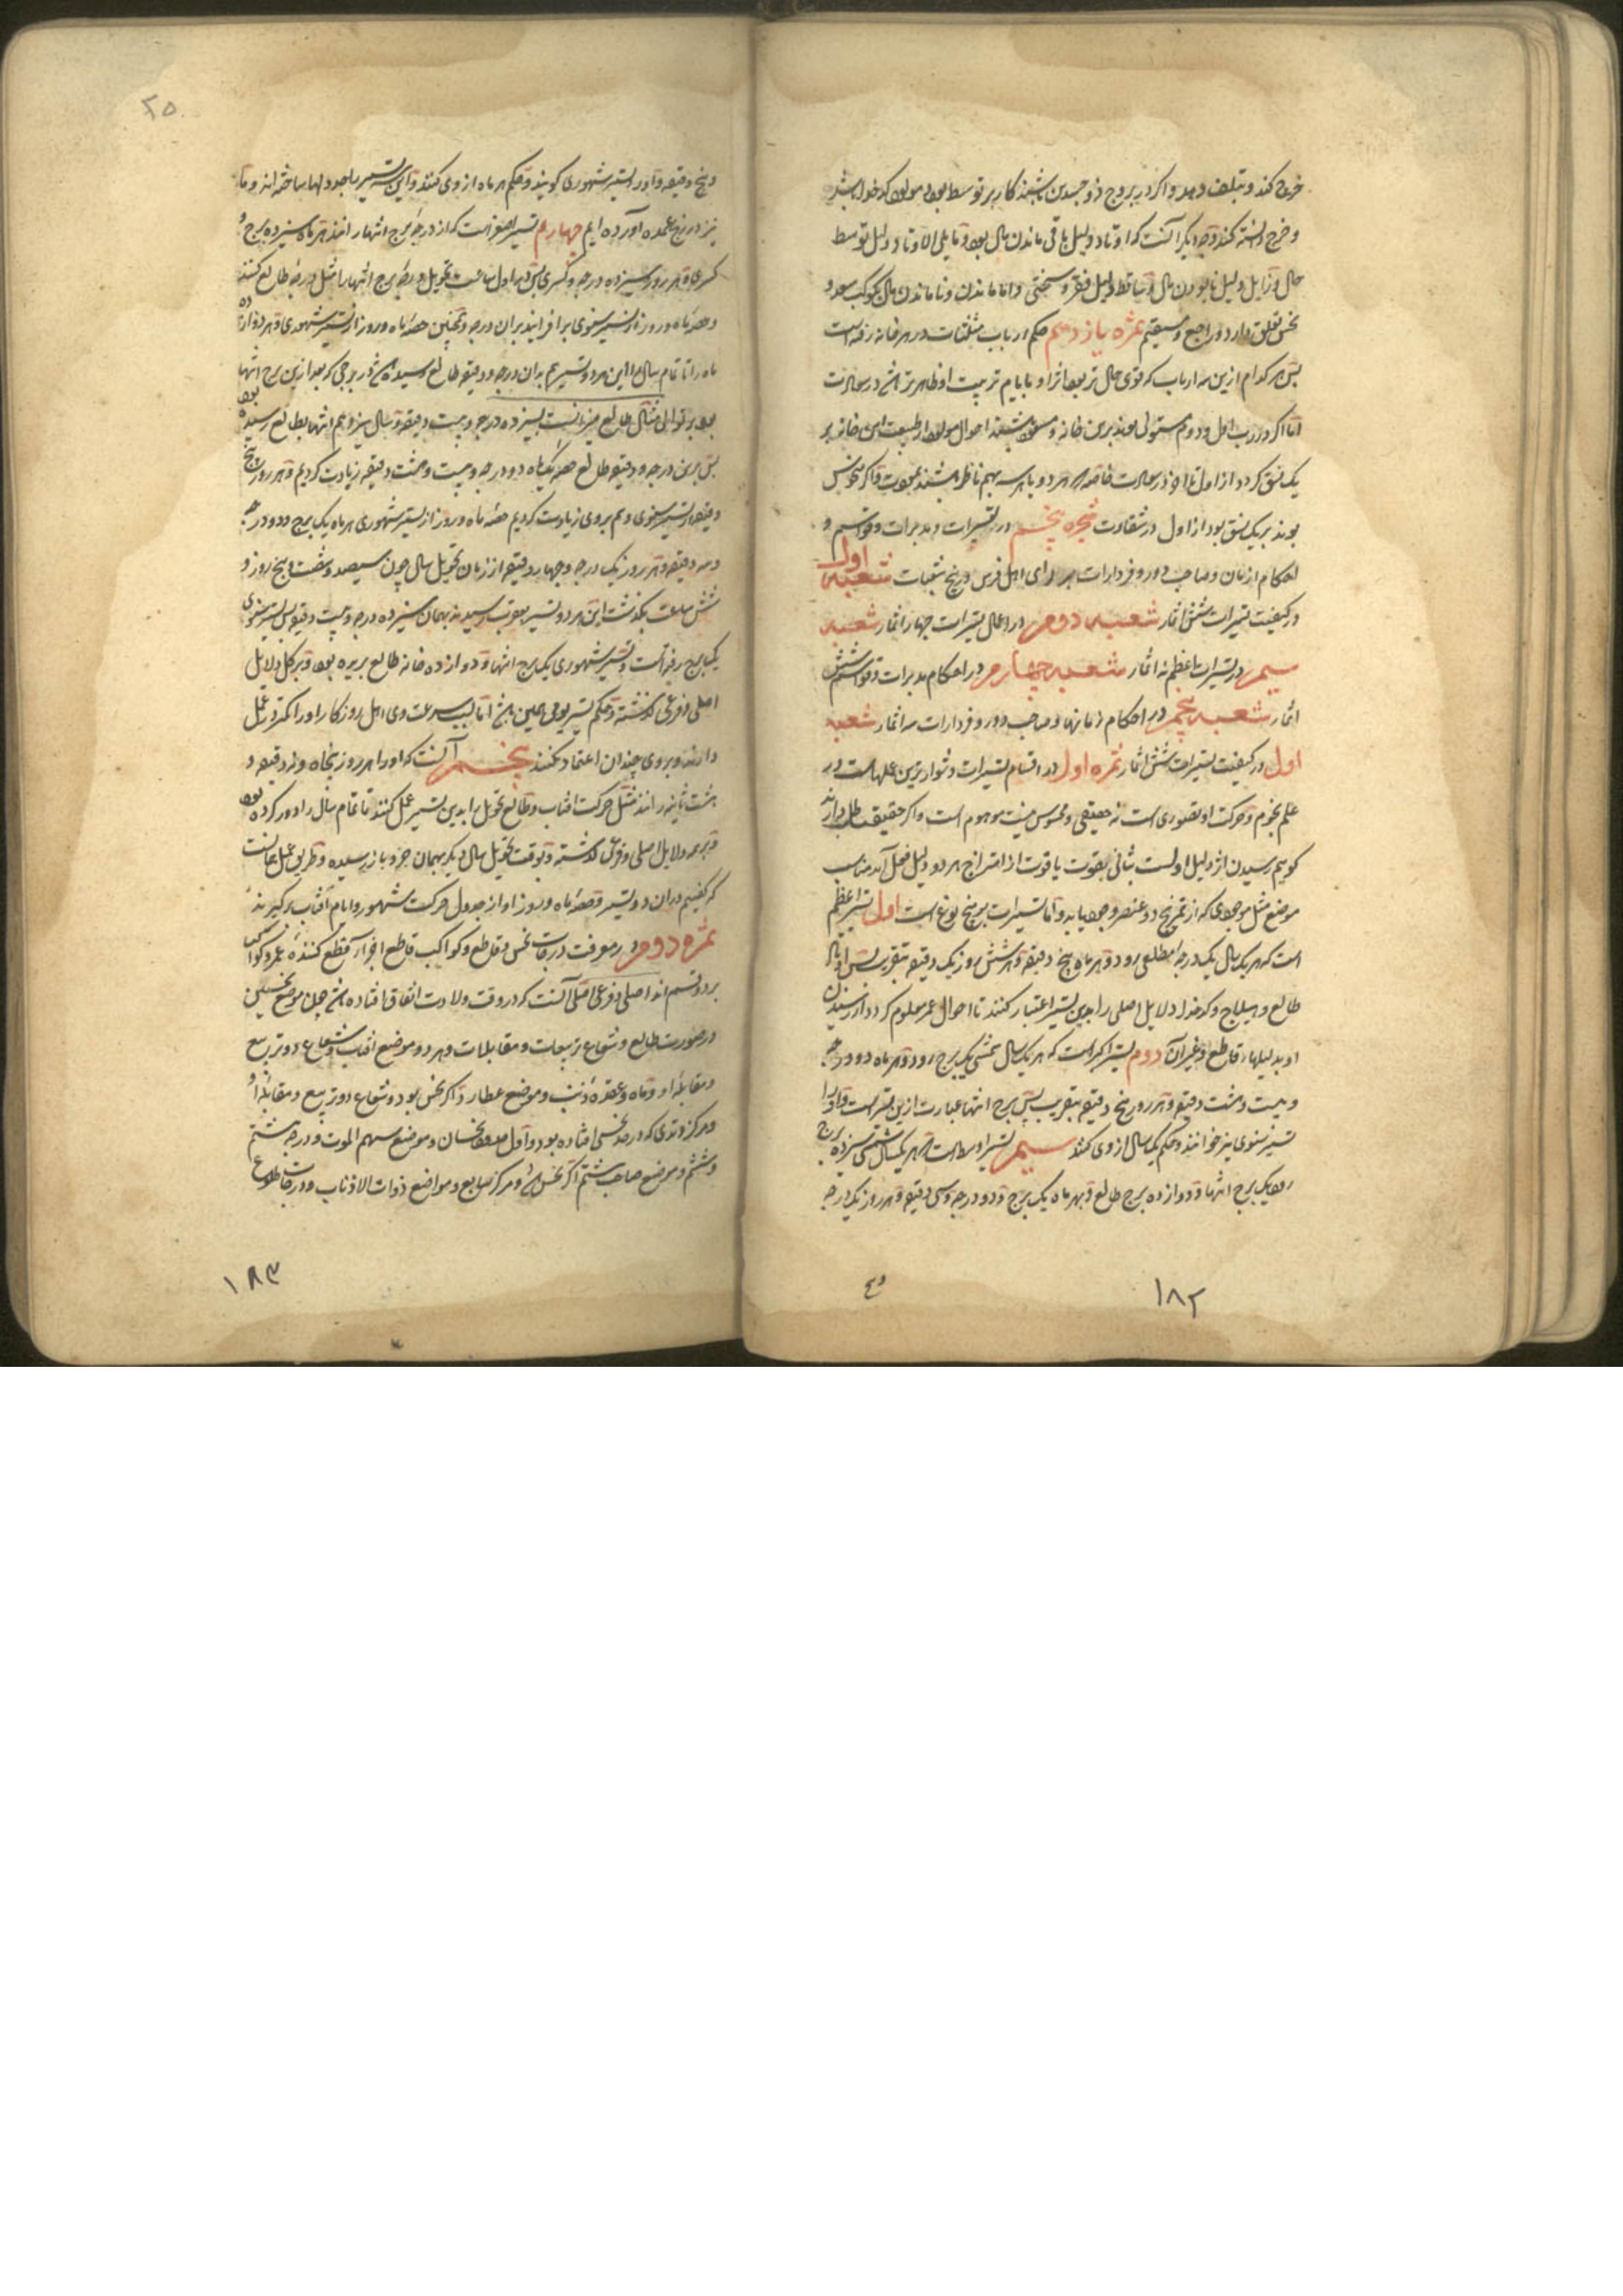 خرج کند و بتلف دهد و اگر در بروج ذو جسدین باشند کار بر توسط بود و مولود کدخدا باشد
و خرج دانسته کند وجه دیگر آنست که اوتاد دلیل باقی ماندن مال بود و مایلی الاوتاد دلیل توسط
حال و زایل دلیل نابودن مال و ساقط دلیل فقر و سختی و اما ماندن و ناماندن مال بکوکب سعد و
نحس تعلق دارد و راجع و مستقیم ثمره یازدهم حکم ارباب مثلثات در هر خانه رفته است
پس هر کدام ازین سه ارباب که قوی حال تر بود اثر او بایام تربیت او ظاهرتر در سعادت
اما اگر رب اول و دوم مستولی بوند برین خانه و مسعود باشند احوال مولود از طبیعت این خانه بر
یک نسق گردد از اول تا آخر در سعادت خاصه که هر دو یا هر سه بهم ناظر باشند بمودت و اگر منحوس
بوند بر یک نسق بود از اول در شقاوت شجره پنجم در تسییرات و مدبرات و قواسم و
احکام ازمان و صاحب دور و فردارات بر رای اهل فرس و پنج شعبات شعبه اول
در کیفیت تسییرات شش اثمار شعبه دوم در اعمال تسییرات چهار اثمار شعبه
سیم در تسییرات اعظم نه اثمار شعبه چهارم در احکام مدبرات و قواسم شش
اثمار شعبه پنجم در احکام زمانها و صاحب دور و فردارات سه اثمار شعبه
اول در کیفیت تسییرات شش اثمار ثمره اول در اقسام تسییرات دشوارترین علمهاست در
علم نجوم و حرکت او تصوری است نه حقیقی و محسوس نیست موهوم است و اگر حقیقت طلب دارند
گوییم رسیدن اثر دلیل اولست بثانی بقوت یا قوت از امتزاج هر دو دلیل فعل آید مناسب
موضع مثل موجودی که از تمزیج دو عنصر وجود یابد و اما تسییرات بر پنج نوع است اول تسییر اعظم
است که هر یک سال یک درجه مطلعی رود و هر ماه پنج دقیقه و هر شش روز یک دقیقه بتقریب پس
طالع و هیلاج و کدخدا و دلایل اصلی را بدین تسییر اعتبار کنند تا احوال عمر معلوم گردد از رسیدن
او بدلیلهاء قاطع و غیر آن دوم تسییر اکبر است که هر یک سال شمسی یک برج رود و هر ماه دو درجه
و بیست و هشت دقیقه و هر روز پنج دقیقه بتقریب پس برج انتها عبارت ازین تسییر است و او را
تسییر سنوی نیز خوانند و حکم یک سال از وی کنند سیم تسییر اوسط است که هر یکسال شمسی سیزده برج
رود یک برج انتها و دوازده برج طالع و بهر ماه یک برج و دو درجه و سی دقیقه و هر روز یک درجه
و پنج
۱۸۲
۲۵
و پنج دقیقه و او را تسییر شهوری گویند و حکم هر ماه از وی کنند و این تسییر را جدولها ساخته اند و ما
نیز در زیج عمده آورده ایم چهارم تسییر اصغر است که از درجه برج انتها رانند هر ماه سیزده برج و
کسری و هر روز سیزده درجه و کسری پس در اول ساعت تحویل درجه برج انتها را مثل درجه طالع کنند
و حصه ماه و روز از تسییر سنوی بر افزایند بران درجه و همچنین حصه ماه و روز از تسییر شهوری و هر دوازده
ماه را تا تمام سال را این هر دو تسییر هم بدان درجه و دقیقه طالع رسیده در برجی که بعد ازین برج انتها
بود بر توالی مثال طالع میزانست بسیزده درجه و بیست دقیقه و سال سیزدهم انتها بطالع رسیده بود
پس برین درجه و دقیقه طالع حصه یک ماه دو درجه و بیست و هشت دقیقه زیادت کردیم و هر روز پنج
دقیقه از تسییر سنوی و هم بروی زیادت کردیم حصه ماه و روز از تسییر شهوری هر ماه یک برج و دو درجه
و سه دقیقه و هر روز یک درجه و چهار دقیقه از زمان تحویل سال چون سیصد و شصت و پنج روز و
شش ساعت بگذشت این هر دو تسییر بعقرب رسید بهمان سیزده درجه و بیست دقیقه پس تسییر سنوی
یک برج رفته است و تسییر شهوری یک برج انتها و دوازده خانه طالع بریده بود و بر کل دلایل
اصلی و فرعی گذشته و حکم تسییر یومی همین اما بسبب سرعت وی اهل روزگار او را کمتر در عمل
دارند و بروی چندان اعتماد نکنند پنجم آنست که او را هر روز پنجاه و نه دقیقه و
هشت ثانیه رانند مثل حرکت آفتاب و طالع تحویل را بدین تسییر عمل کنند تا تمام سال را دور کرده بود
و بر همه دلایل اصلی و فرعی گذشته و بوقت تحویل سال دیگر بهمان جزو باز رسیده و طریق عمل همانست
که گفتیم در آن دو تسییر و حصه ماه و روز او از جدول حرکت شهور و ایام آفتاب برگیرند
ثمره دوم در معرفت درجات نحس و قاطع و کواکب قاطع اجزاء قطع کننده عمر و کواکب
بر دو قسم اند اصلی و فرعی اصلی آنست که در وقت ولادت اتفاق افتاده چون موضع نحسین
در صورت طالع و شعاع تربیعات و مقابلات و هر دو موضع آفتاب و شعاع دو تربیع
و مقابله او و ماه و عقده ذنب و موضع عطارد اگر نحس بود و شعاع دو تربیع و مقابله او
و مرکز وتدی که در حد نحسی افتاده بود و اول حدود نحسان و موضع سهم الموت و درجه هشتم
و ششم و موضع صاحب هشتم اگر نحس و مرکز سابع و مواضع ذوات الاذناب و درجات طلوع
۱۸۳